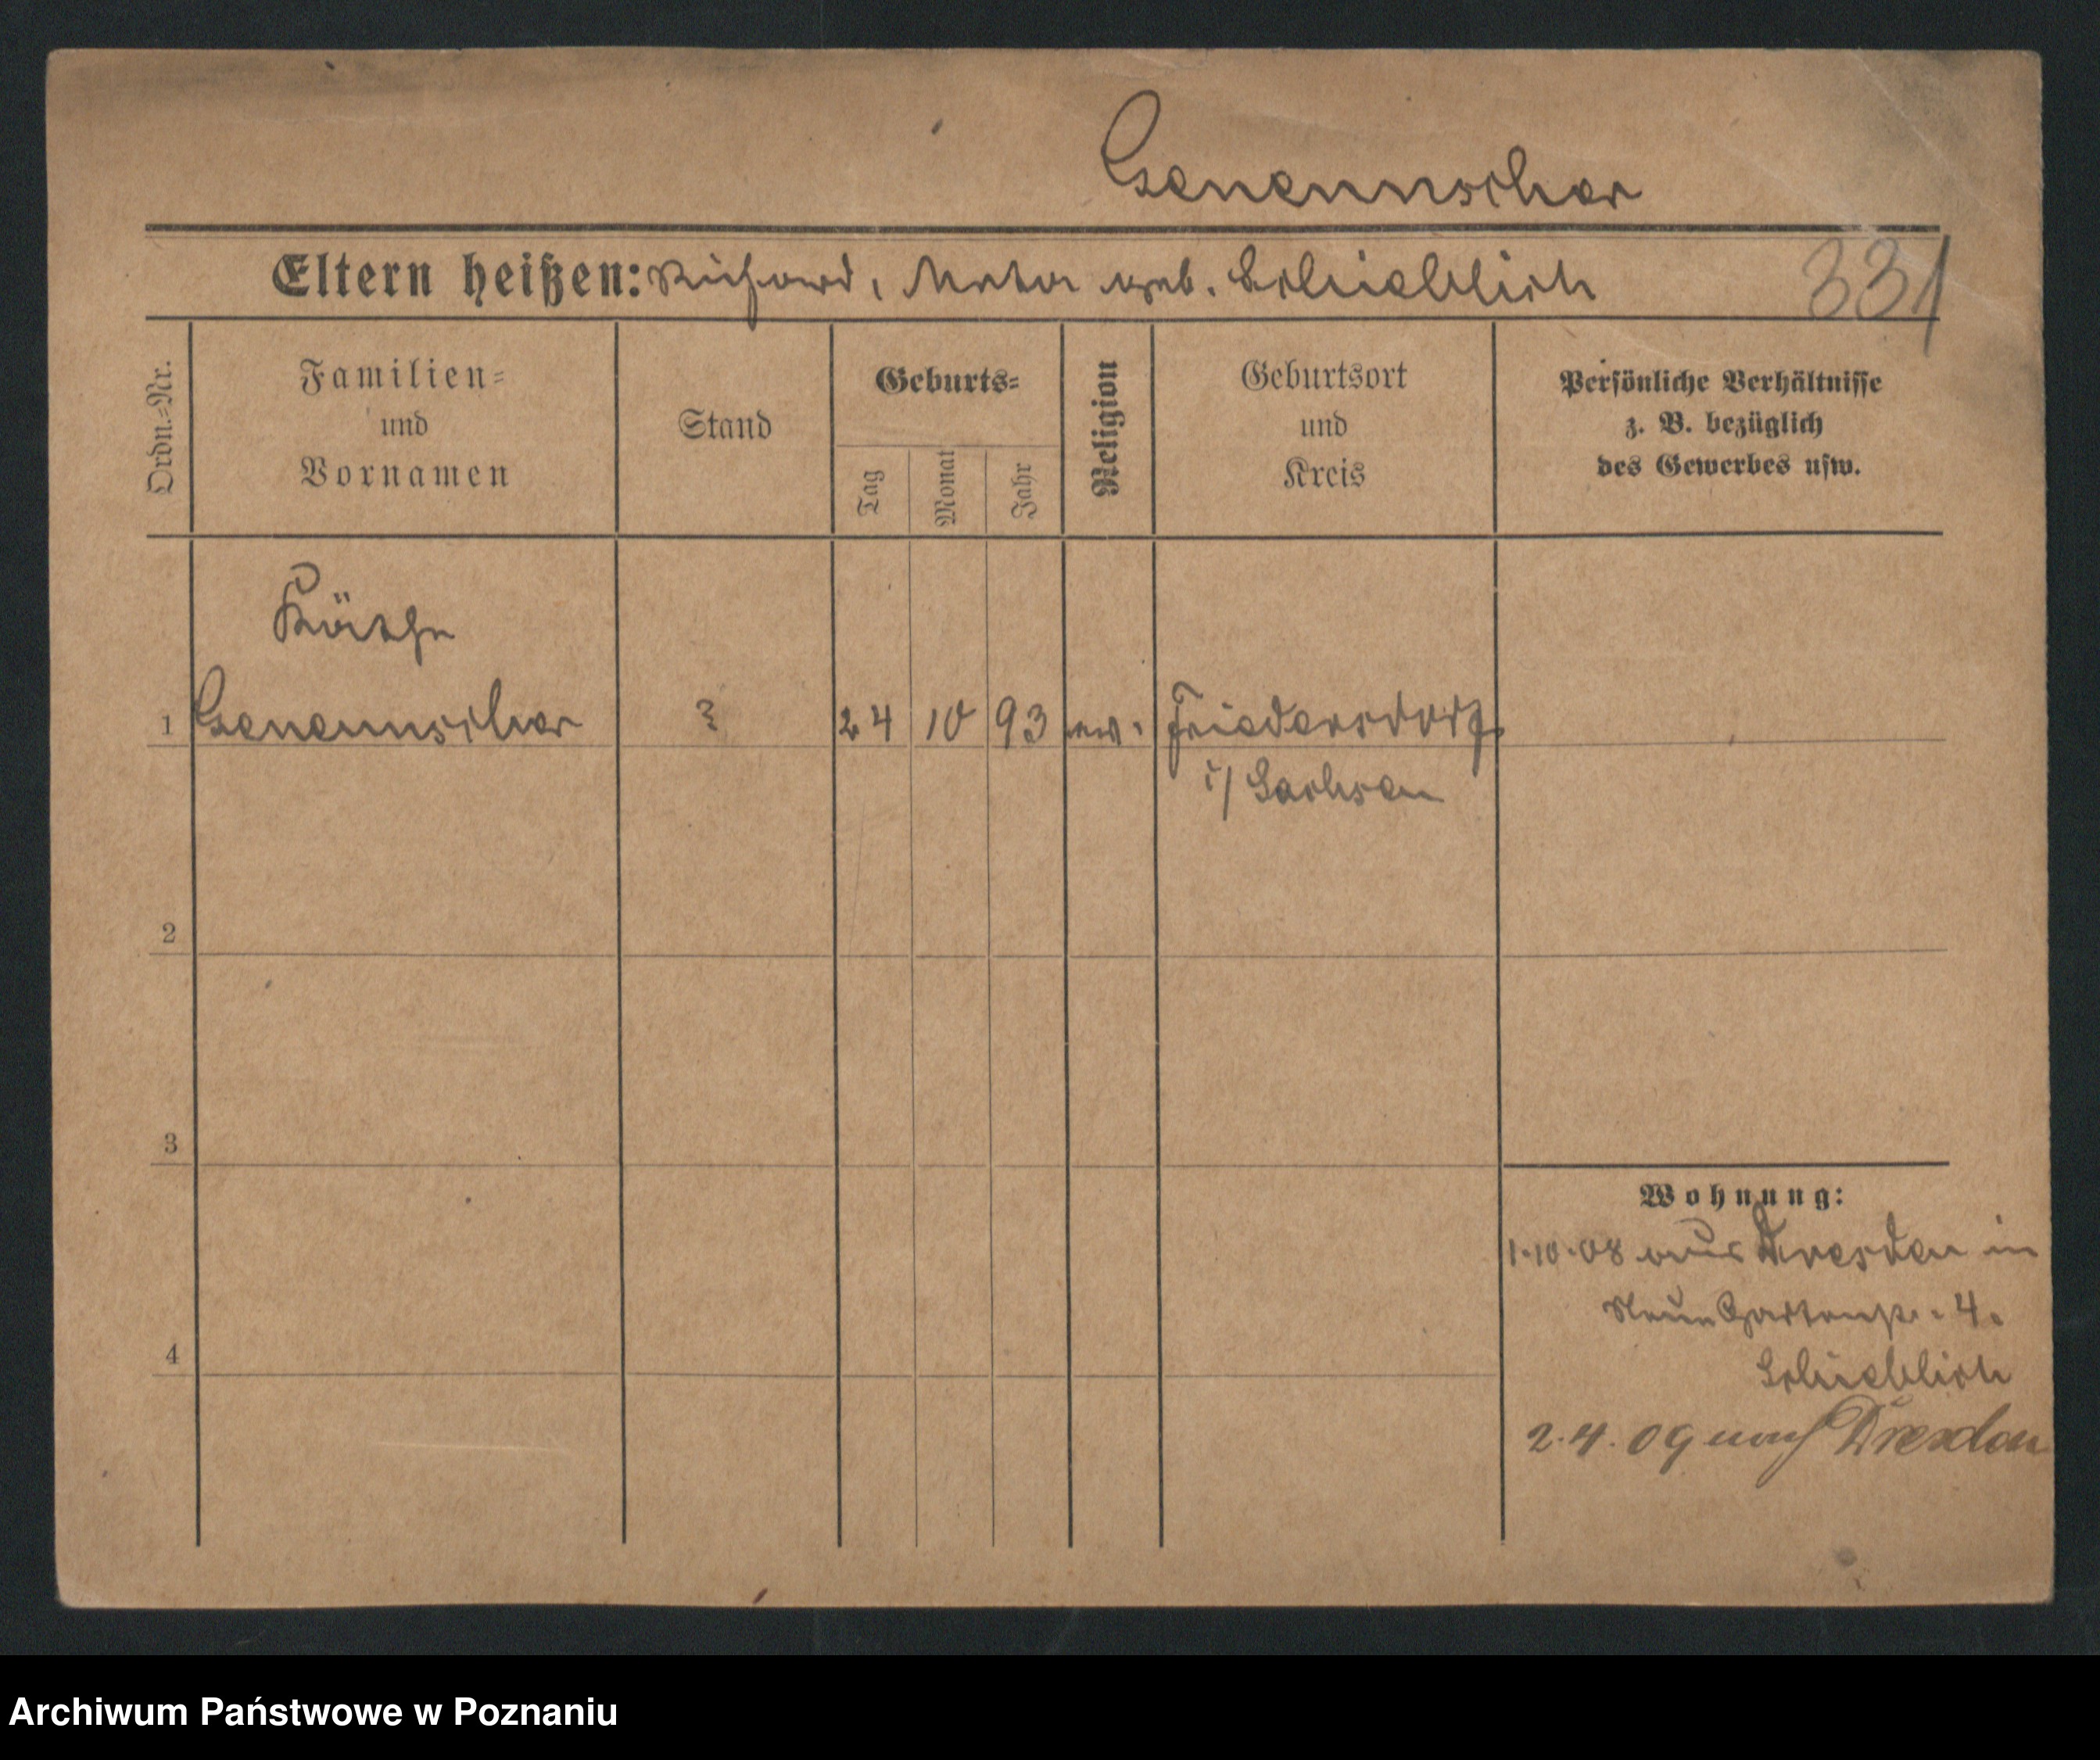 Genennscher
Eltern heißen: Richard, Meta geb. Schieblich
331
Ordn.-Nr.
Familien-
und
Vornamen
Stand
Geburts-
Tag
Monat
Jahr
Religion
Geburtsort
und
Kreis
Persönliche Verhältnisse
z. B. bezüglich
des Gewerbes usw.
Käthe
1 Genennscher 24 10 93 ev. Friedersdorf
i/ Sachsen
2
3
4
Wohnung:
1.10.08 aus Dresden in
Neue Gartenstr. 4.
Schieblich
2.4.09 nach Dresden
Archiwum Państwowe w Poznaniu